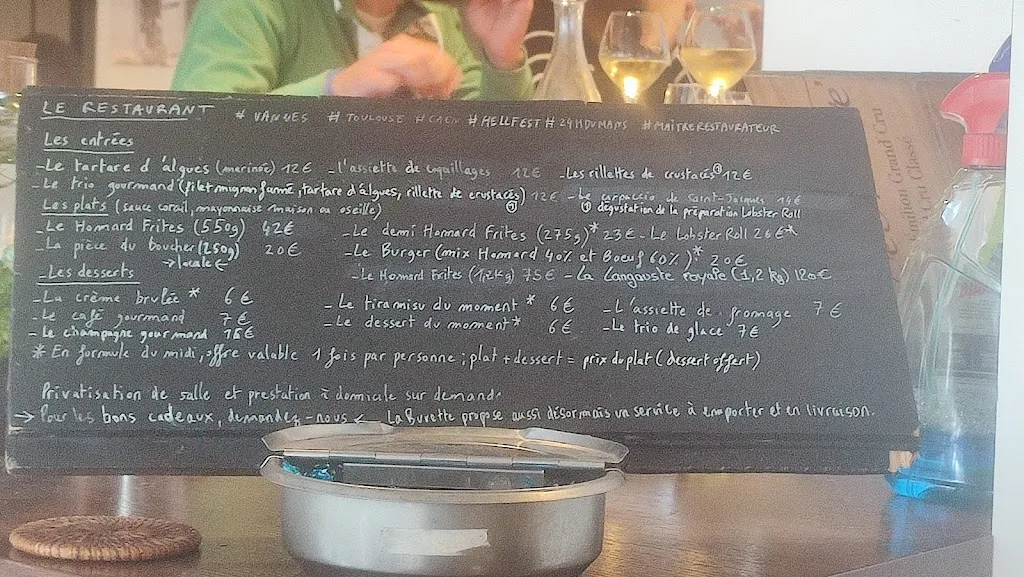 LE RESTAURANT # VANNES # TOULOUSE # CAEN # HELLFEST # 24HDUMANS # MAITRERESTAURATEUR
Les entrées
-Le tartare d'algues (marinée) 12€ -l'assiette de coquillages 12€ -Les rillettes de crustacés① 12€
-Le trio gourmand (filet mignon fumé, tartare d'algues, rillette de crustacés)① 12€ -Le carpaccio de Saint-Jacques 14€
Les plats (sauce corail, mayonnaise maison ou oseille) ① dégustation de la préparation Lobster Roll
-Le Homard Frites (550g) 42€ -Le demi Homard Frites (275g)* 23€ -Le Lobster Roll 26€*
-La pièce du boucher (250g) 20€ -Le Burger (mix Homard 40% et Boeuf 60%)* 20€
→locale←
-Le Homard Frites (1,2kg) 75€ -La langouste royale (1,2 kg) 120€
-Les desserts
-La crème brulée * 6€ -Le tiramisu du moment * 6€ -L'assiette de fromage 7€
-Le café gourmand 7€ -Le dessert du moment* 6€ -Le trio de glace 7€
-Le champagne gourmand 16€
* En formule du midi, offre valable 1 fois par personne; plat + dessert = prix du plat (dessert offert)
Privatisation de salle et prestation à domicile sur demande
→ Pour les bons cadeaux, demandez-nous ← La Buvette propose aussi désormais un service à emporter et en livraison.
Grand Cru
Classé